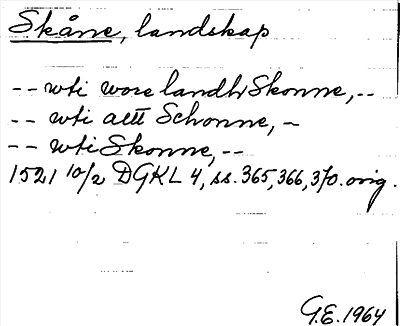 Skåne, landskap
-- wti wore landh Skonne, --
-- wti alt Schonne, -
-- wti Skonne, --
1521 10/2 DGKL 4, ss. 365, 366, 370. orig.
G.E. 1964